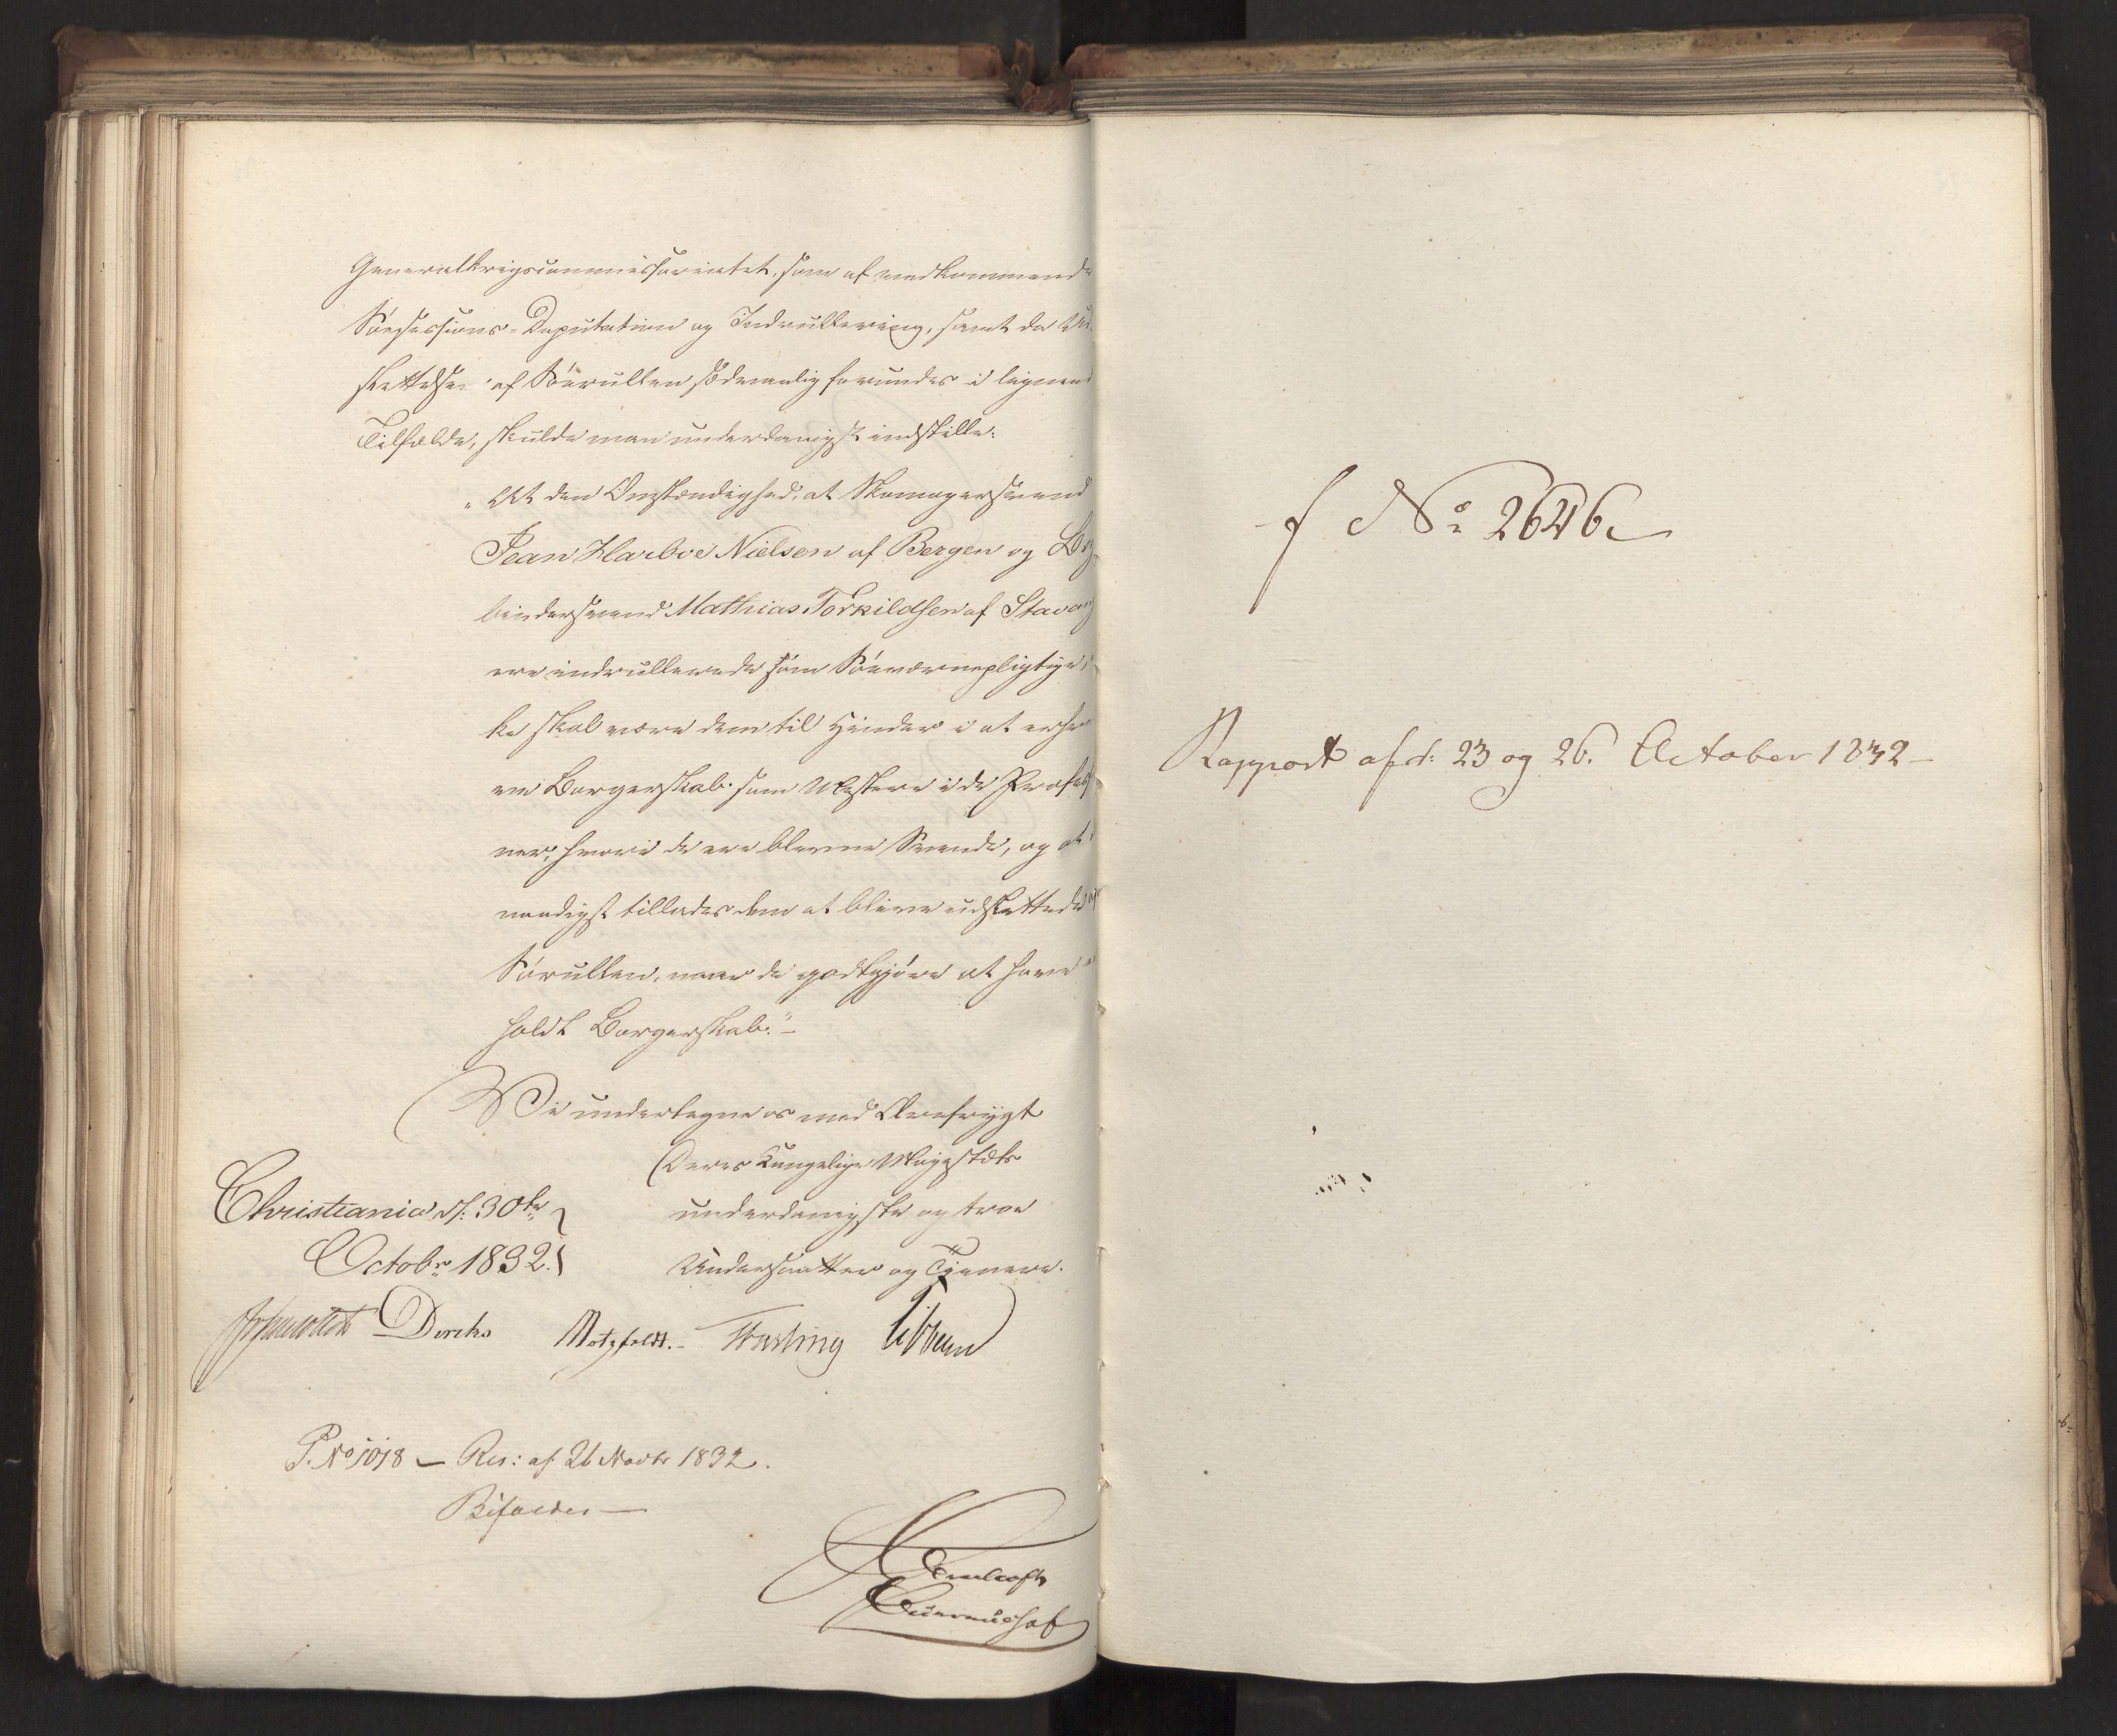 Generalkrigscommissariatet, som af vedkommende
Söesessions-Deputation og Indrullering, samt da Ud-
slettelse af Söerullen sædvanlig forundes i lignende
Tilfælde, skulde man underdanigst indstille:
"At den Omstændighed, at Skomagersvend
Jean Harboe Nielsen af Bergen og Bog-
bindersvend Mathias Torkildsen af Stavang
ere indrullerede som Söeværnepligtige, i
ke skal være dem til Hinder i at erhver
ve Borgerskab som Mestere i de Profes
ner, hvori de ere blevne Svende, og at
naadigst tillades dem at blive udslettede af
Sörullen, naar de godtgjöre at have
holdt Borgerskab."
Vi undertegne os med Ærefrygt
Deres Kongelige Majestæts
underdanigste og troe
Undersaatter og Tjenere.
Christiania d. 30te
Octobr 1832.
Diriks Motzfeldt. Fasting Vibe
P. No 1018 – Res: af 26 Novbr 1832.
Bifaldes –
f No 2646
Rapport af d: 23 og 26. October 1832